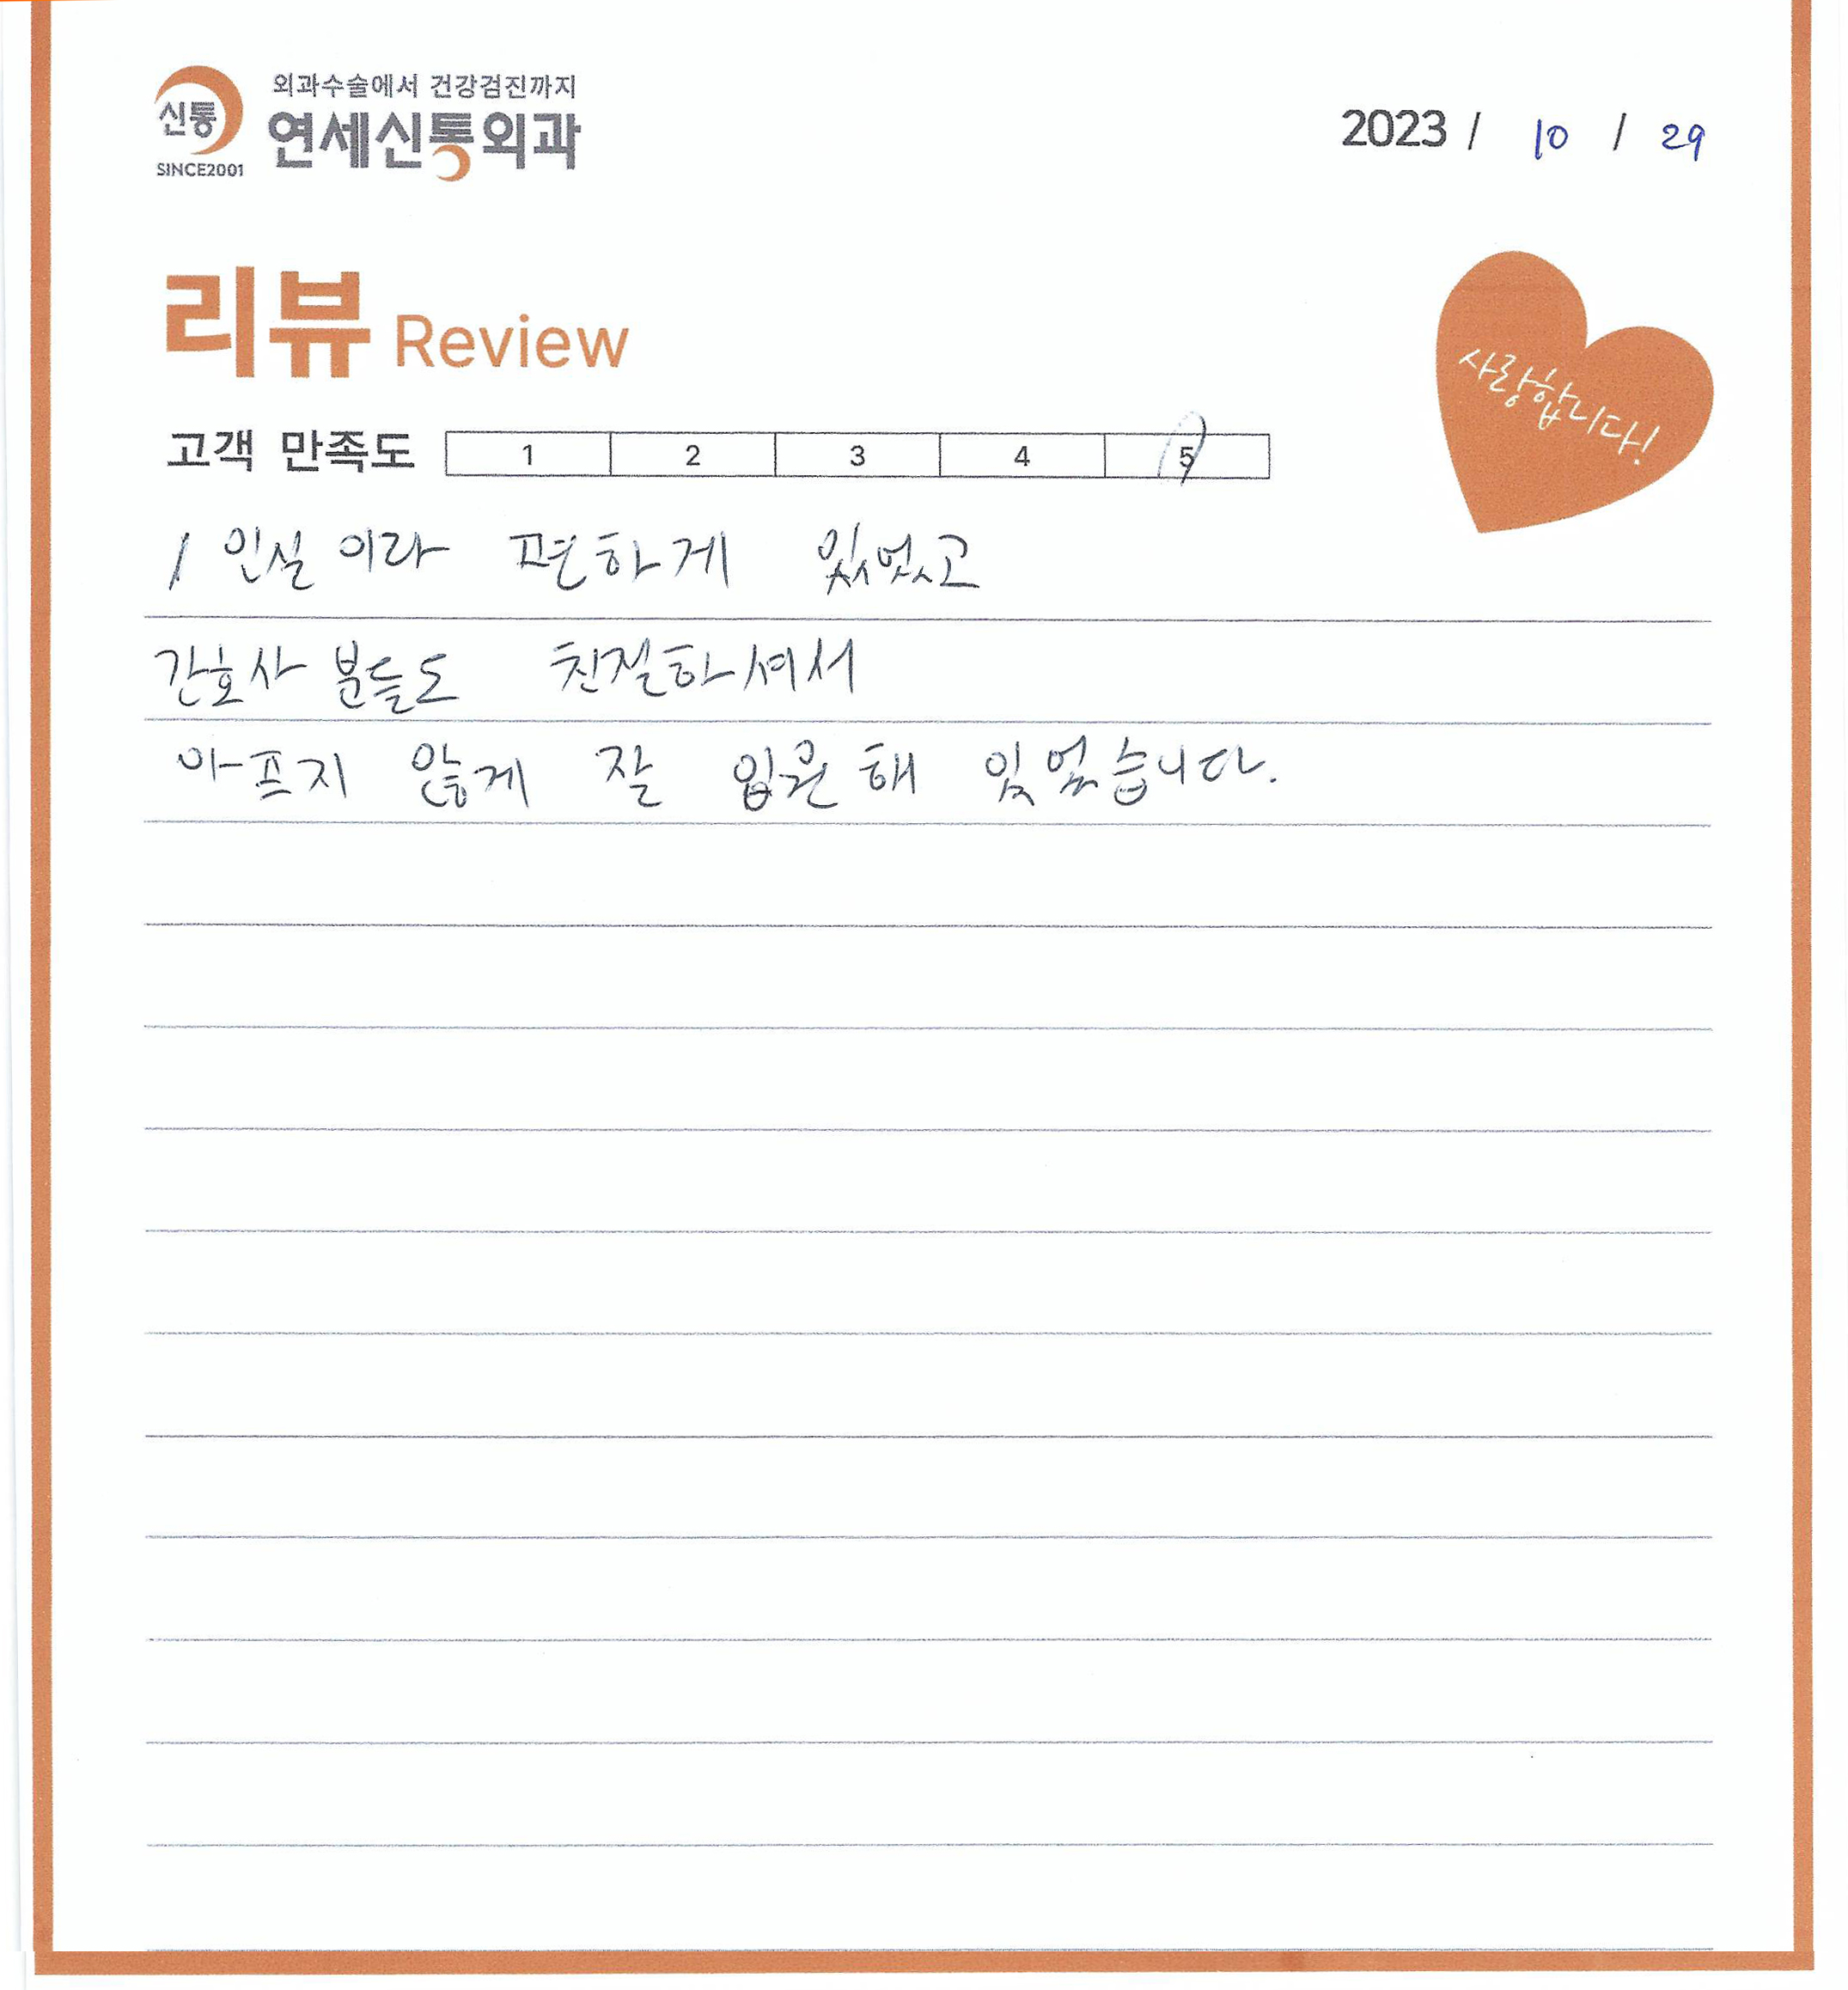 외과수술에서 건강검진까지
신통 연세신통외과
SINCE2001
2023 / 10 / 29
리뷰 Review
사랑합니다!
고객 만족도 1 2 3 4 5
1인실 이라 편하게 있었고
간호사 분들도 친절하셔서
아프지 않게 잘 입원해 있었습니다.